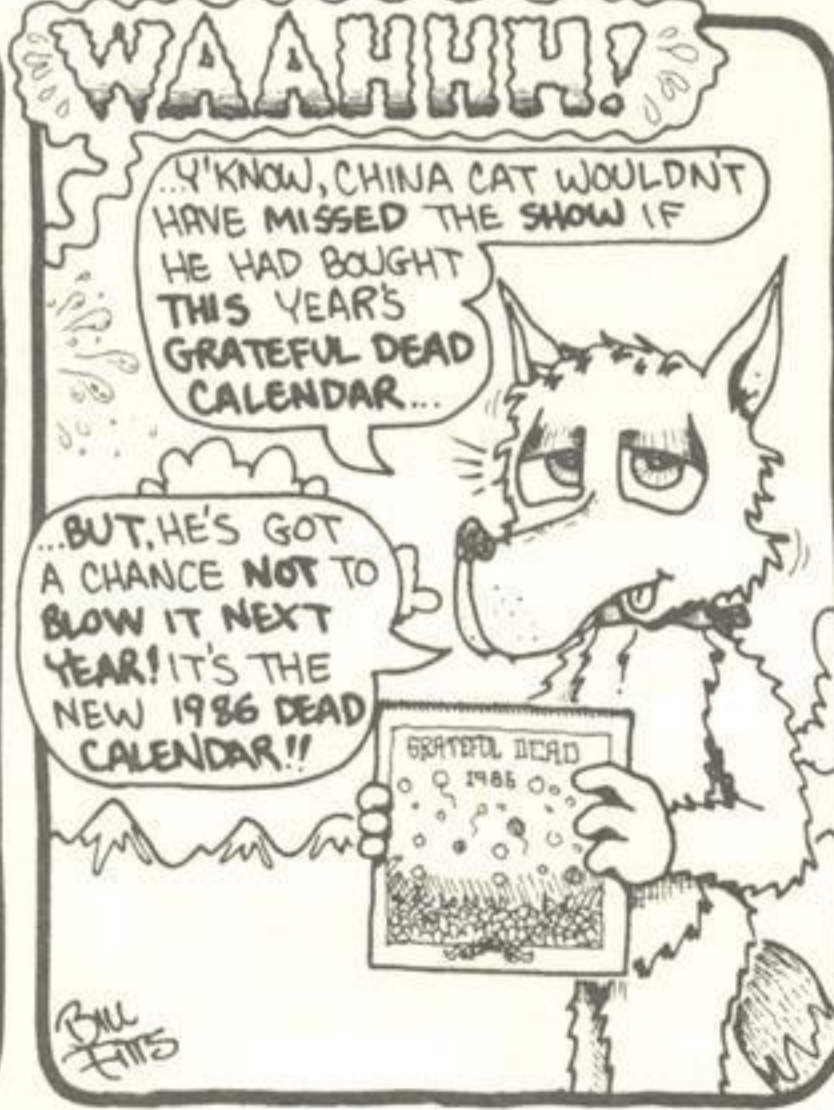 WAAHHH!
...Y'KNOW, CHINA CAT WOULDN'T
HAVE MISSED THE SHOW IF
HE HAD BOUGHT
THIS YEAR'S
GRATEFUL DEAD
CALENDAR...
...BUT, HE'S GOT
A CHANCE NOT TO
BLOW IT NEXT
YEAR! IT'S THE
NEW 1986 DEAD
CALENDAR!!
GRATEFUL DEAD
1986
BILL
FITTS